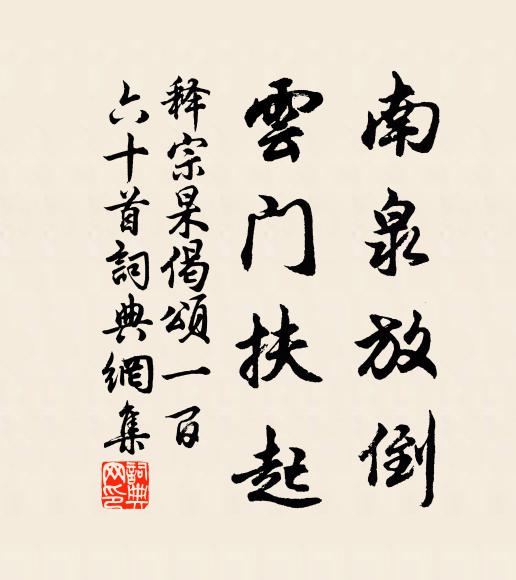 南泉放倒
雲门扶起
释宗杲偈頌一百
六十首詞典網集
詞典网印